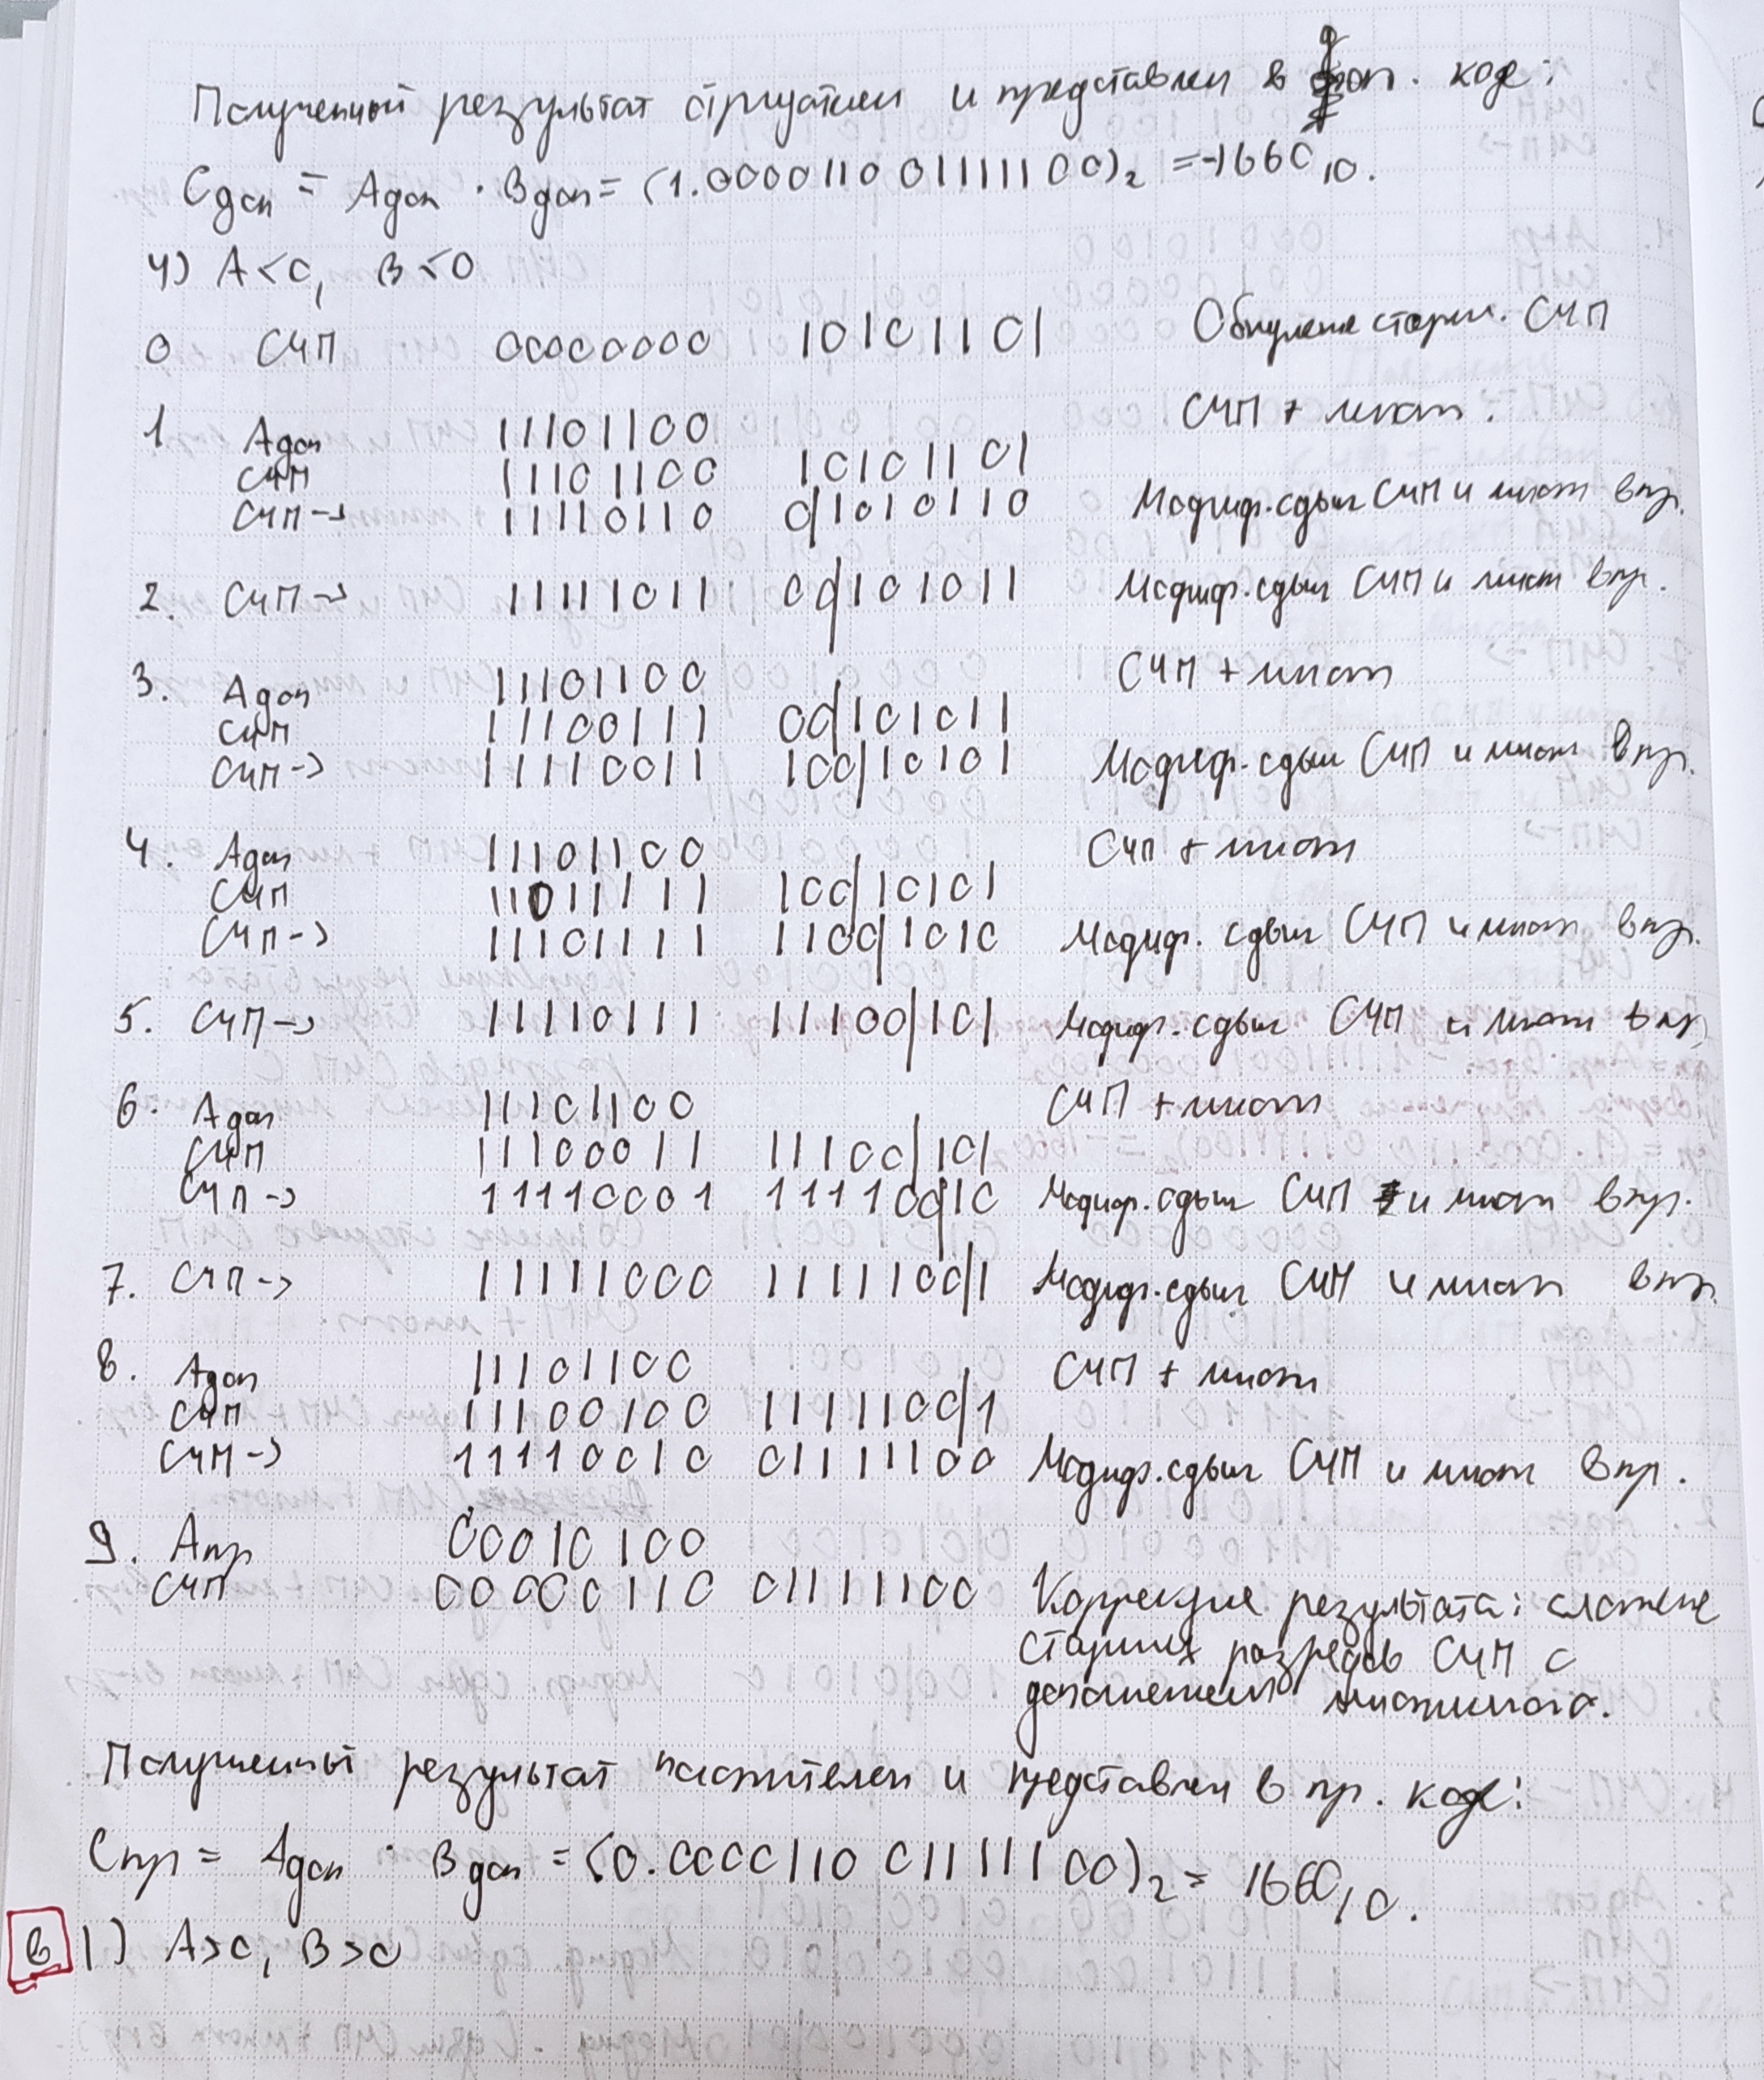 Полученный результат отрицателен и представлен в доп. коде:
Сдоп = Адоп · Вдоп = (1.0000110 01111100)₂ = -1660₁₀.
4) А<0, В<0
0 СЧП 00000000 10101101 Обнуление старш. СЧП
1 Адоп 11101100 СЧП + множ.
СЧП 11101100 10101101
СЧП→ 11110110 0|1010110 Модиф. сдвиг СЧП и множ впр.
2. СЧП→ 11111011 00|101011 Модиф. сдвиг СЧП и множ впр.
3. Адоп 11101100 СЧП + множ
СЧП 11100111 00|101011
СЧП→ 11110011 100|10101 Модиф. сдвиг СЧП и множ впр.
4. Адоп 11101100 СЧП + множ
СЧП 11011111 100|10101
СЧП→ 11101111 1100|1010 Модиф. сдвиг СЧП и множ впр.
5. СЧП→ 11110111 11100|101 Модиф. сдвиг СЧП и множ впр.
6. Адоп 11101100 СЧП + множ
СЧП 11100011 11100|101
СЧП→ 11110001 111100|10 Модиф. сдвиг СЧП и множ впр.
7. СЧП→ 11111000 1111100|1 Модиф. сдвиг СЧП и множ впр.
8. Адоп 11101100 СЧП + множ
СЧП 11100100 1111100|1
СЧП→ 11110010 01111100 Модиф. сдвиг СЧП и множ впр.
9. Апр 00010100
СЧП 00000110 01111100 Коррекция результата: сложение
старших разрядов СЧП с
дополнением множимого.
Полученный результат положителен и представлен в пр. коде:
Спр = Адоп · Вдоп = (0.0000110 01111100)₂ = 1660₁₀.
в 1) А>0, В>0